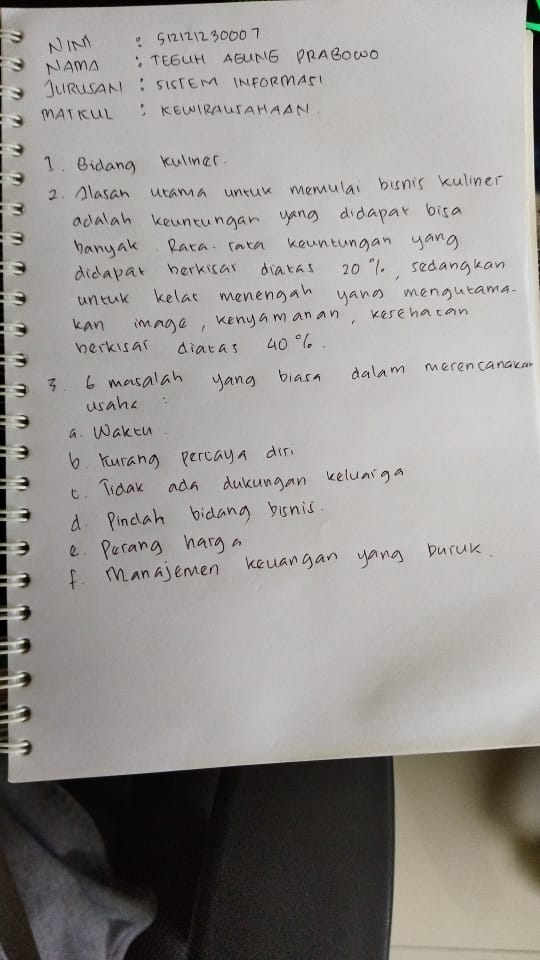 NIM : 512121230007
NAMA : TEGUH AGUNG PRABOWO
JURUSAN : SISTEM INFORMASI
MATKUL : KEWIRAUSAHAAN.
1. Bidang kuliner.
2. Alasan utama untuk memulai bisnis kuliner
adalah keuntungan yang didapat bisa
banyak. Rata-rata keuntungan yang
didapat berkisar diatas 20%, sedangkan
untuk kelas menengah yang mengutama-
kan image, kenyamanan, kesehatan
berkisar diatas 40%.
3. 6 masalah yang biasa dalam merencanakan
usaha :
a. Waktu.
b. Kurang percaya diri
c. Tidak ada dukungan keluarga
d. Pindah bidang bisnis.
e. Perang harga
f. Manajemen keuangan yang buruk.